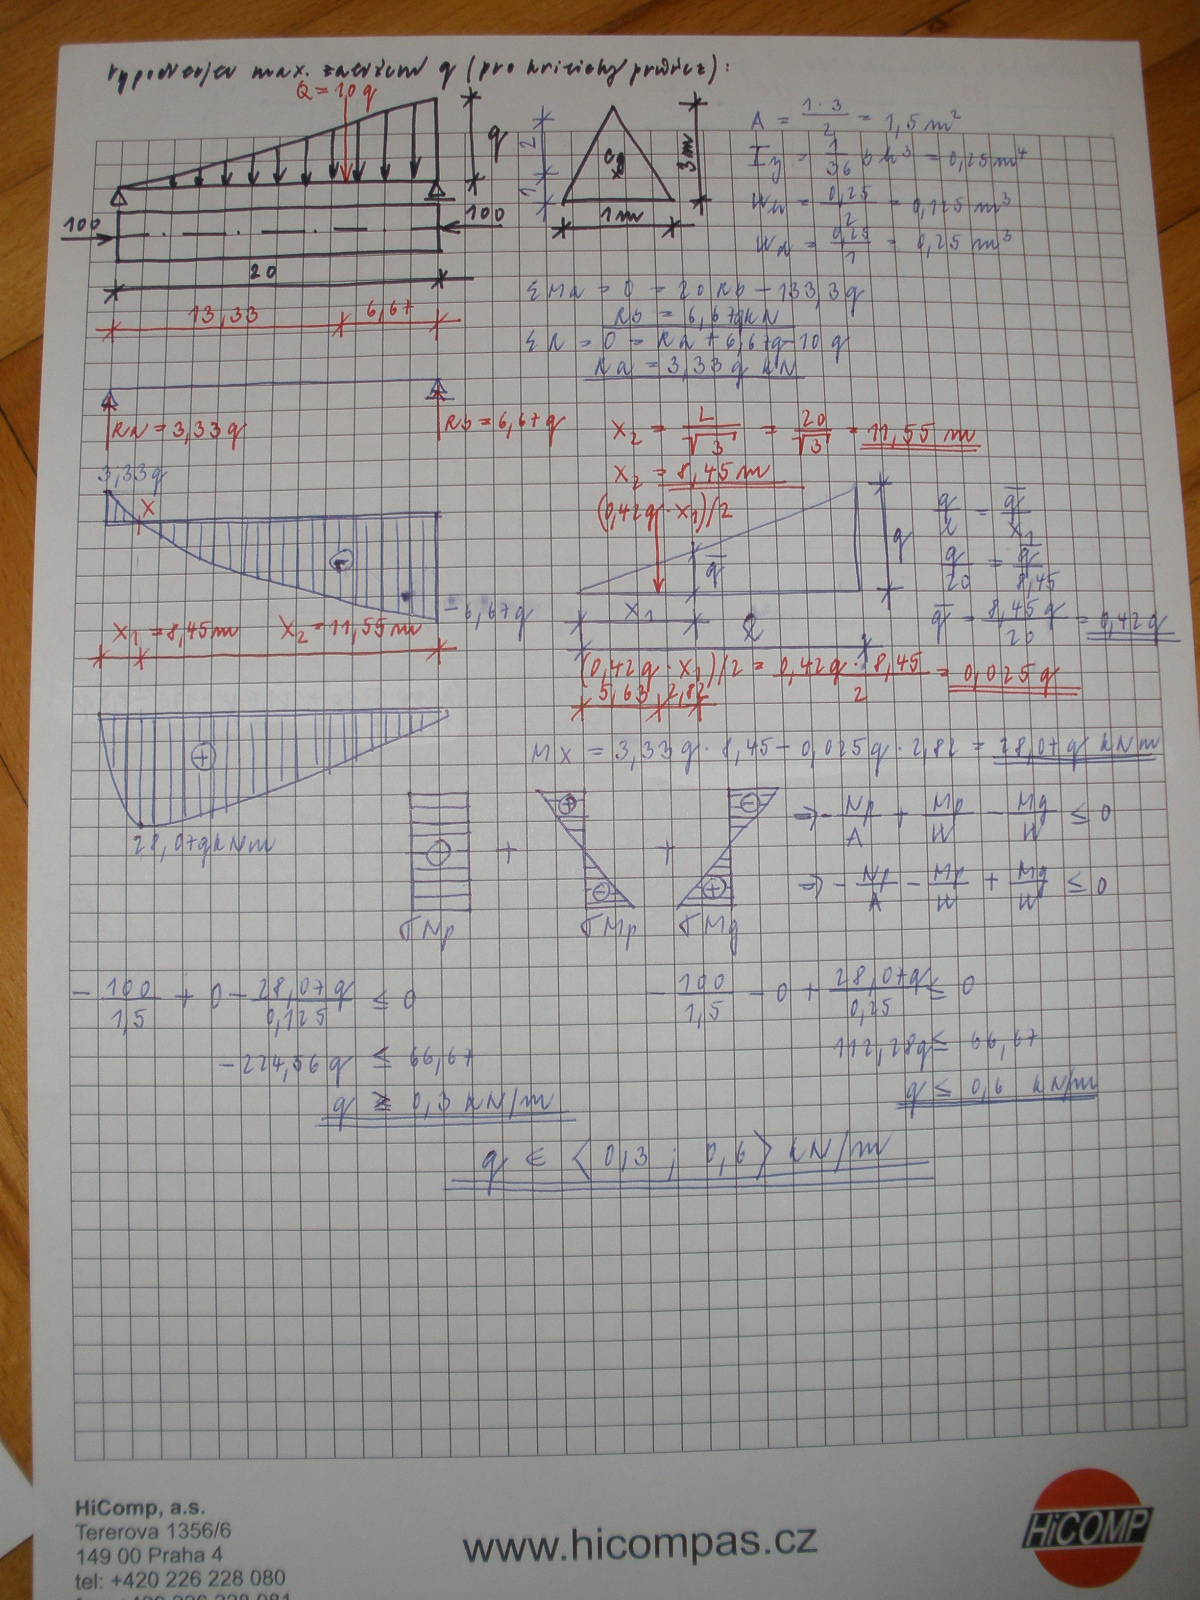 max. zatížení q (pro kritický průřez):
Q = 10 q
q
100
100
20
13,33
6,67
2
1
3 m
1 m
A = 1·3/2 = 1,5 m²
Iy = 1/36 b h³ = 0,25 m⁴
Wh = 0,25/2 = 0,125 m³
Wd = 0,25/1 = 0,25 m³
ΣMa = 0 = 20 Rb - 133,3 q
Rb = 6,67 q kN
ΣR = 0 = Ra + 6,67q - 10 q
Ra = 3,33 q kN
Ra = 3,33 q
Rb = 6,67 q
X₂ = L/√3 = 20/√3 = 11,55 m
X₂ = 8,45 m
3,33 q
X
-
-6,67 q
X₁ = 8,45 m
X₂ = 11,55 m
(0,42q · X₁)/2
q̄
q
X₁
q/l = q̄/X₁
q/20 = q̄/8,45
q̄ = 8,45 q/20 = 0,42 q
(0,42 q · X₁)/2 = 0,42 q · 8,45/2 = 0,025 q
5,63
2,82
+
28,07 q kNm
Mx = 3,33 q · 8,45 - 0,025 q · 2,82 = 28,07 q kNm
- + + - + -
+
σNp
σMp
σMq
⇒ - Np/A + Mp/W - Mq/W ≤ 0
⇒ - Np/A - Mp/W + Mq/W ≤ 0
- 100/1,5 + 0 - 28,07 q/0,125 ≤ 0
-224,56 q ≤ 66,67
q ≥ 0,3 kN/m
- 100/1,5 - 0 + 28,07q/0,25 ≤ 0
112,28q ≤ 66,67
q ≤ 0,6 kN/m
q ∈ ⟨0,3 ; 0,6⟩ kN/m
HiComp, a.s.
Tererova 1356/6
149 00 Praha 4
tel: +420 226 228 080
www.hicompas.cz
HiCOMP